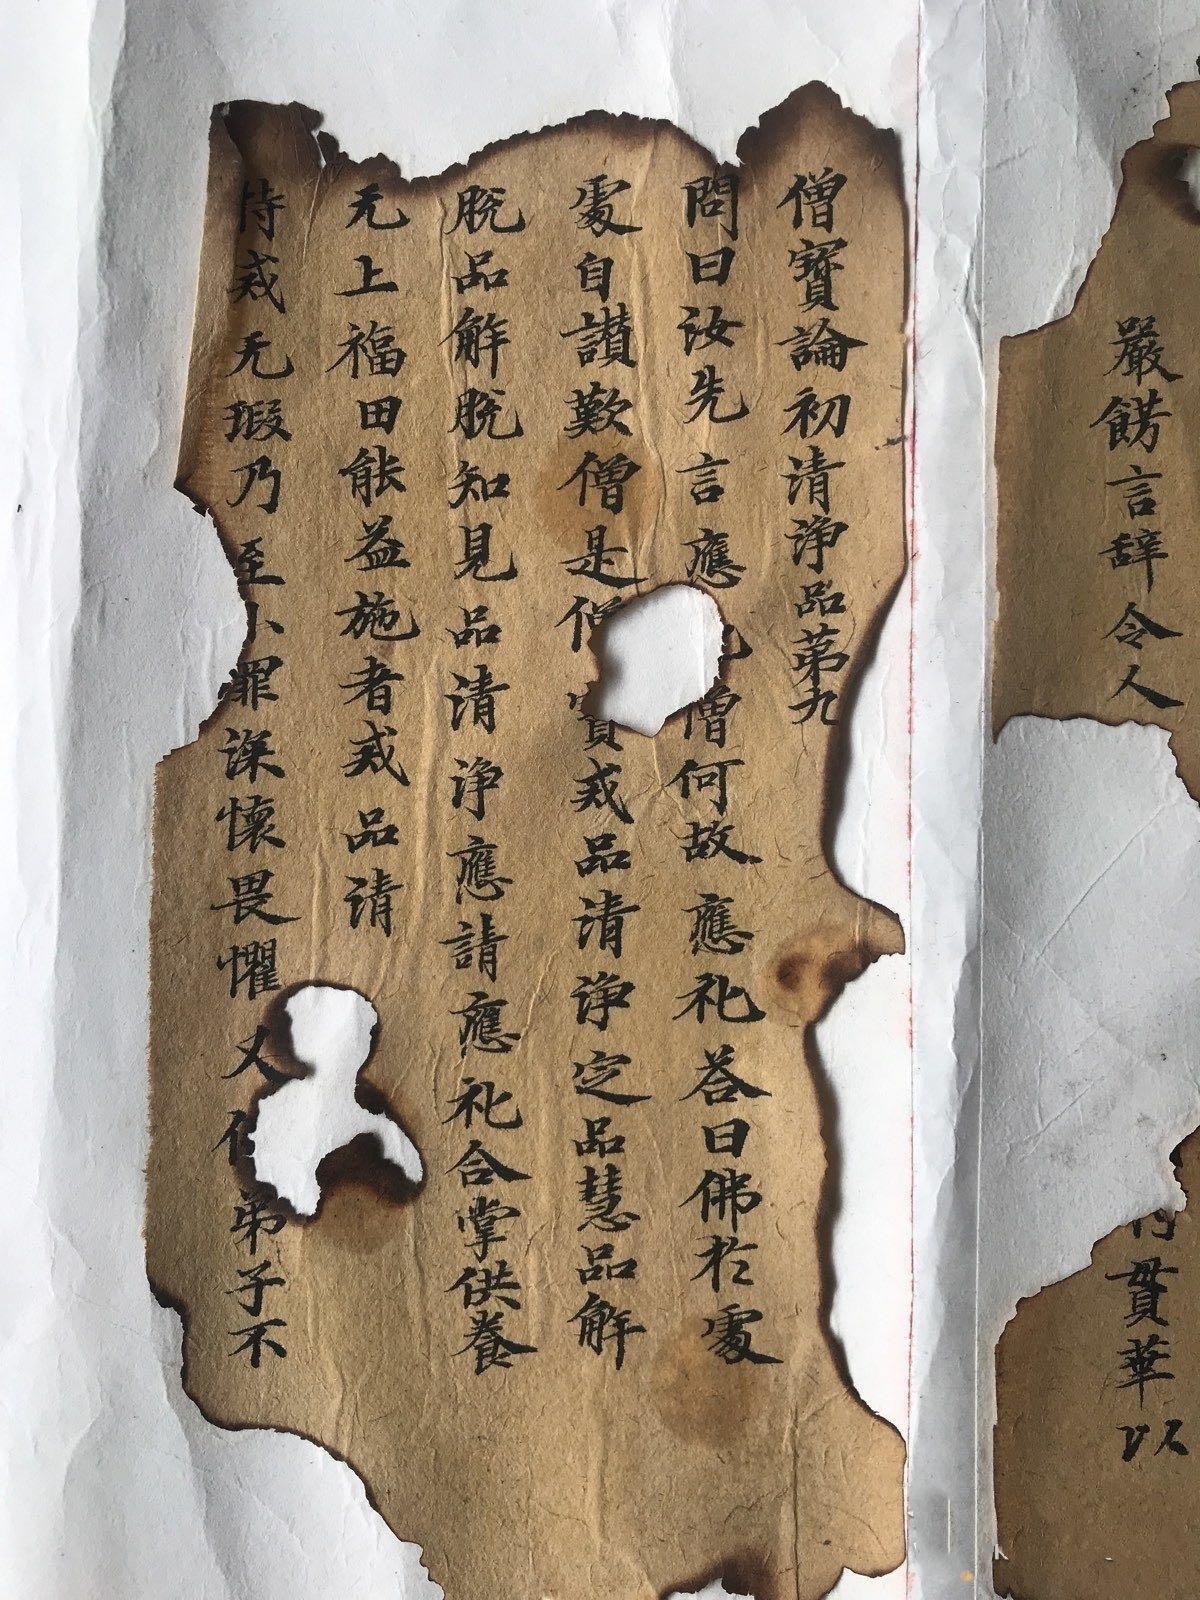 嚴餝言辞令人
貫華以
僧寳論初清淨品苐九
問曰汝先言應礼僧何故應礼荅曰佛於處
處自讃歎僧是僧寳戒品清淨定品慧品解
脫品解脫知見品清淨應請應礼合掌供養
无上福田能益施者戒品请
持戒无瑕乃至小罪深懷畏懼又弟子不